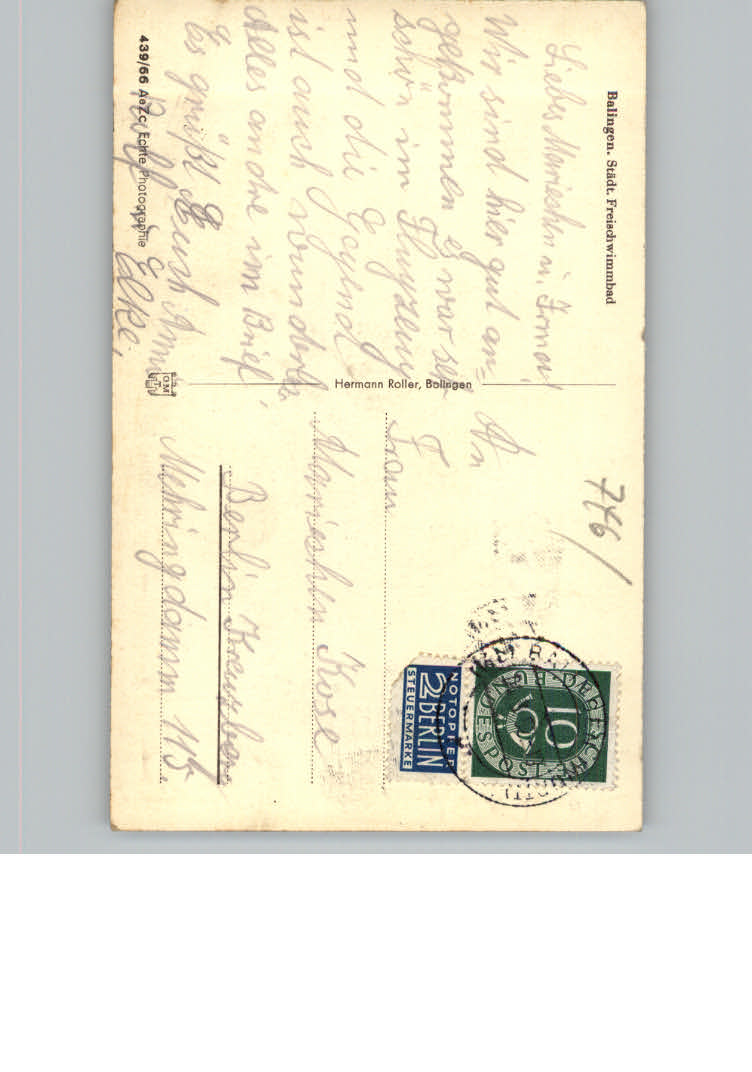 Balingen. Städt. Freischwimmbad
Liebes Marieschen u. Irma!
Wir sind hier gut an=
gekommen es war sehr
schön im Flugzeug
und die Gegend
ist auch wunderbar
Alles andre im Brief.
Es grüßt Euch
Rolf u. Elke.
439/66 AeZc. Echte Photographie
Hermann Roller, Balingen
746/
An
Frau
Marieschen Kose
Berlin Kreuzberg
Mehringdamm 115.
10
DEUTSCHE
BUNDESPOST
NOTOPFER
2 BERLIN
STEUERMARKE